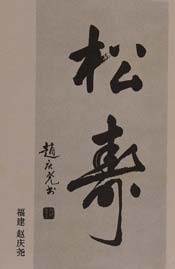 松寿
赵庆尧书
福建 赵庆尧